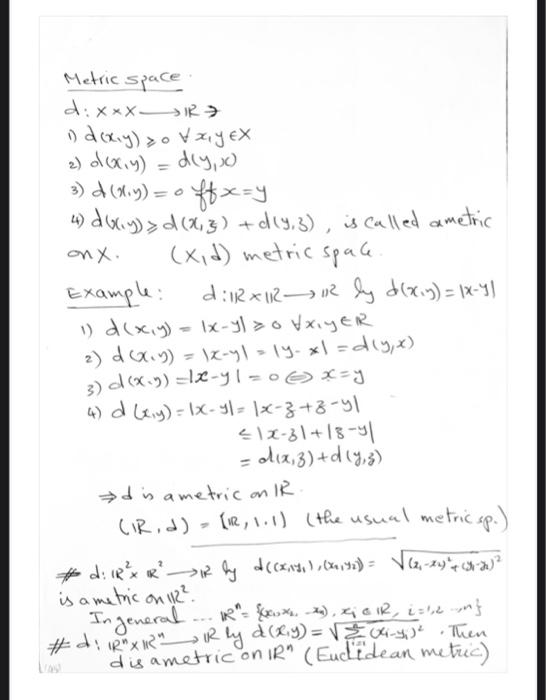 Metric space.
d: X×X → ℝ ∋
1) d(x,y) ≥ 0 ∀ x,y ∈ X
2) d(x,y) = d(y,x)
3) d(x,y) = 0 iff x=y
4) d(x,y) ≥ d(x,z) + d(y,z) , is called a metric
on X. (X,d) metric space.
Example: d: ℝ×ℝ → ℝ by d(x,y) = |x-y|
1) d(x,y) = |x-y| ≥ 0 ∀x,y∈ℝ
2) d(x,y) = |x-y| = |y-x| = d(y,x)
3) d(x,y) = |x-y| = 0 ⇔ x=y
4) d(x,y) = |x-y| = |x-z+z-y|
≤ |x-z|+|z-y|
= d(x,z)+d(y,z)
⇒ d is a metric on ℝ.
(ℝ,d) = (ℝ,|.|) (the usual metric sp.)
# d: ℝ²×ℝ² → ℝ by d((x₁,y₁),(x₂,y₂)) = √(x₁-x₂)²+(y₁-y₂)²
is a metric on ℝ².
In general ... ℝⁿ = {(x₁,x₂,...,xₙ), xᵢ ∈ ℝ, i=1,2...,n}
# d: ℝⁿ×ℝⁿ → ℝ by d(x,y) = √Σ(xᵢ-yᵢ)² . Then
d is a metric on ℝⁿ (Euclidean metric)